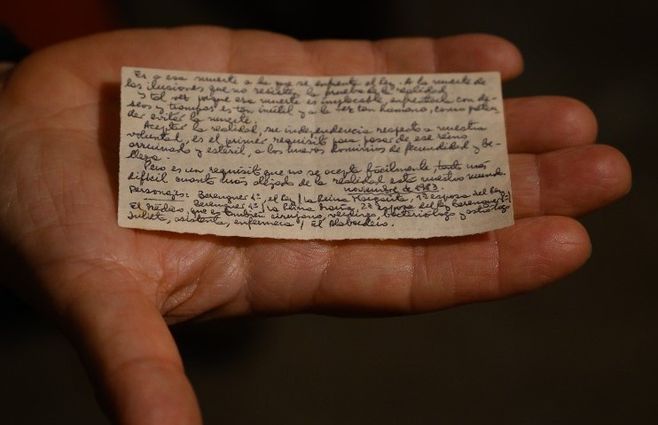 Es a esa muerte a la que se enfrenta el rey. A la muerte de
las ilusiones que no resisten la prueba de la realidad
y tal vez porque esa muerte es inaplacable, enfrentarla con de-
seos y trampas es tan inútil y a la vez tan humano, como preten-
der evitar la muerte.
Aceptar la realidad, su independencia respecto a nuestra
voluntad, es el primer requisito para pasar de ese reino
arruinado y estéril, a los nuevos dominios de fecundidad y be-
lleza.
Pero es un requisito que no se acepta fácilmente, tanto más
difícil cuanto más alejado de la realidad esté nuestro mundo
noviembre de 1983.
Personajes: Berenguer 1º, el Rey / La Reina Margarita, 1ª esposa del Rey
Berenguer 1º / La Reina María, 2ª esposa del Rey Berenguer 1º
El Médico, que es también cirujano, verdugo, bacteriólogo y astrólogo
Julieta, asistenta, enfermera / El Alabardero.